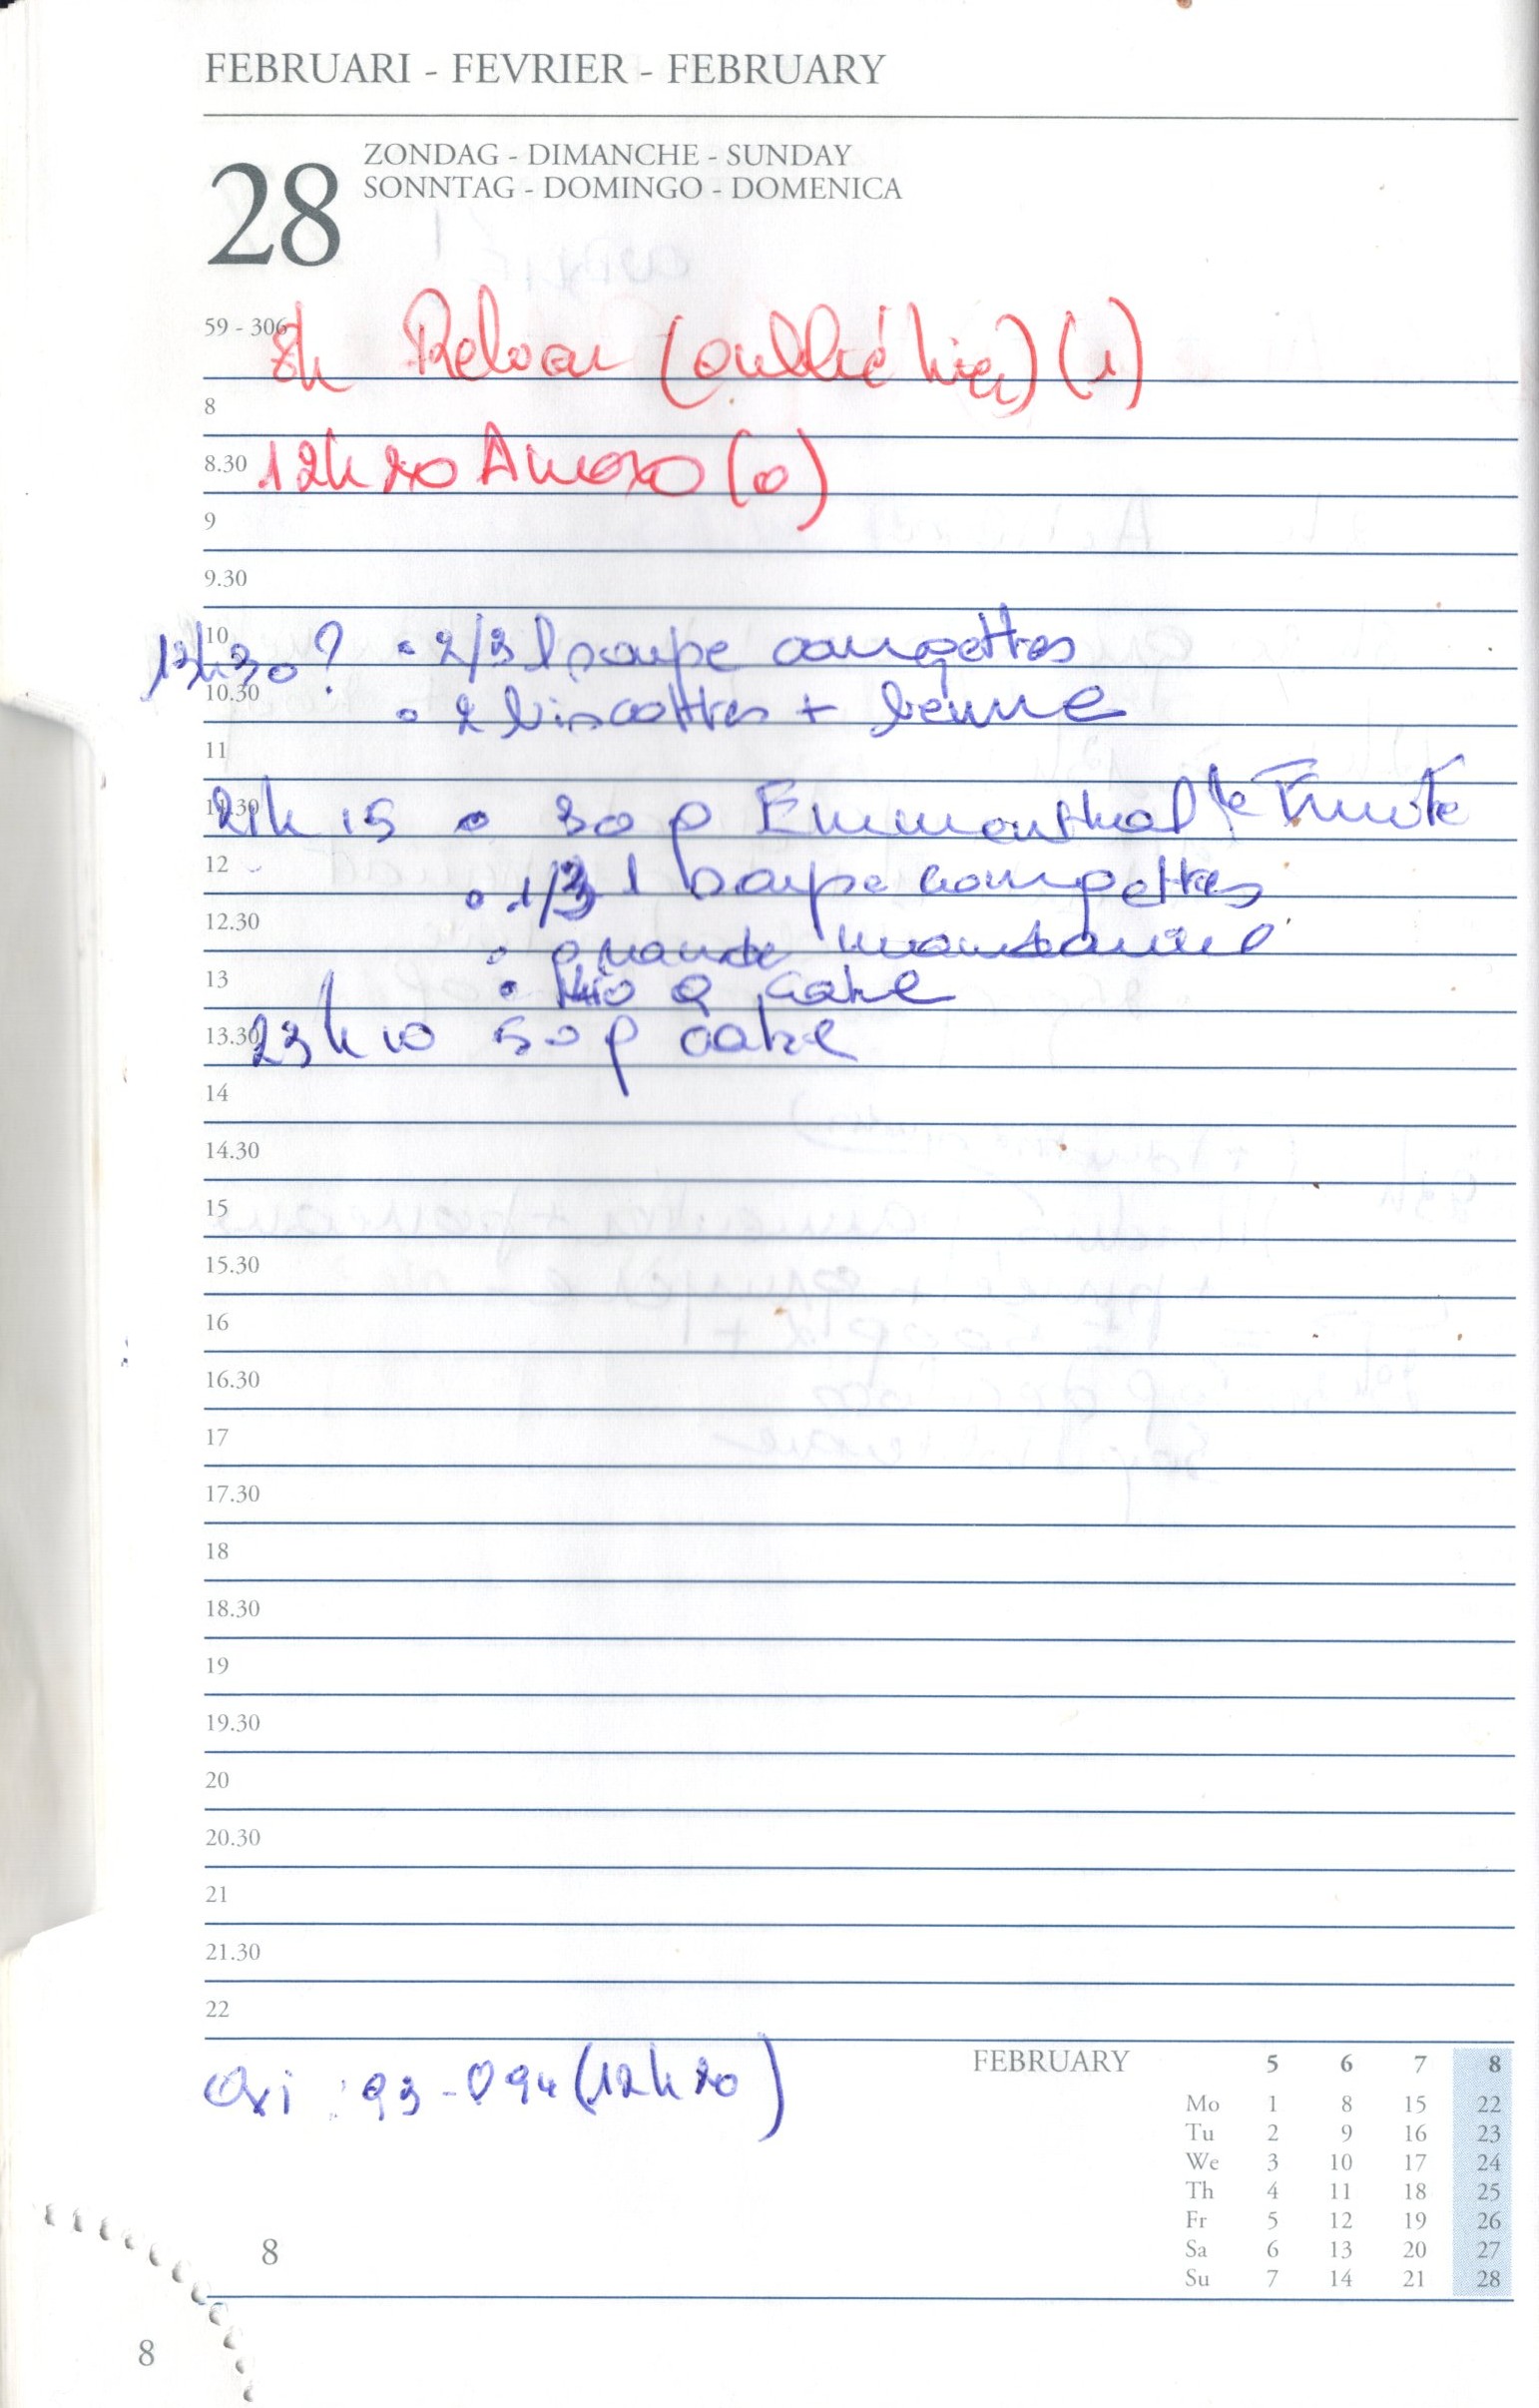 FEBRUARI - FEVRIER - FEBRUARY
28
ZONDAG - DIMANCHE - SUNDAY
SONNTAG - DOMINGO - DOMENICA
59 - 306
8h Relvar (oublié hier) (1)
8
8.30
12h20 Amoxo (0)
9
9.30
10
13h30 ? • 2/3 l soupe courgettes
10.30
• 2 biscottes + beurre
11
11.30
21h15 • 30 g Emmenthal de
12
• 1/3 l soupe courgettes
12.30
• grande
13
• cake
13.30
23h10 50 g cake
14
14.30
15
15.30
16
16.30
17
17.30
18
18.30
19
19.30
20
20.30
21
21.30
22
Oxi : 93-094 (12h20)
FEBRUARY 5 6 7 8
Mo 1 8 15 22
Tu 2 9 16 23
We 3 10 17 24
Th 4 11 18 25
Fr 5 12 19 26
Sa 6 13 20 27
Su 7 14 21 28
8
8